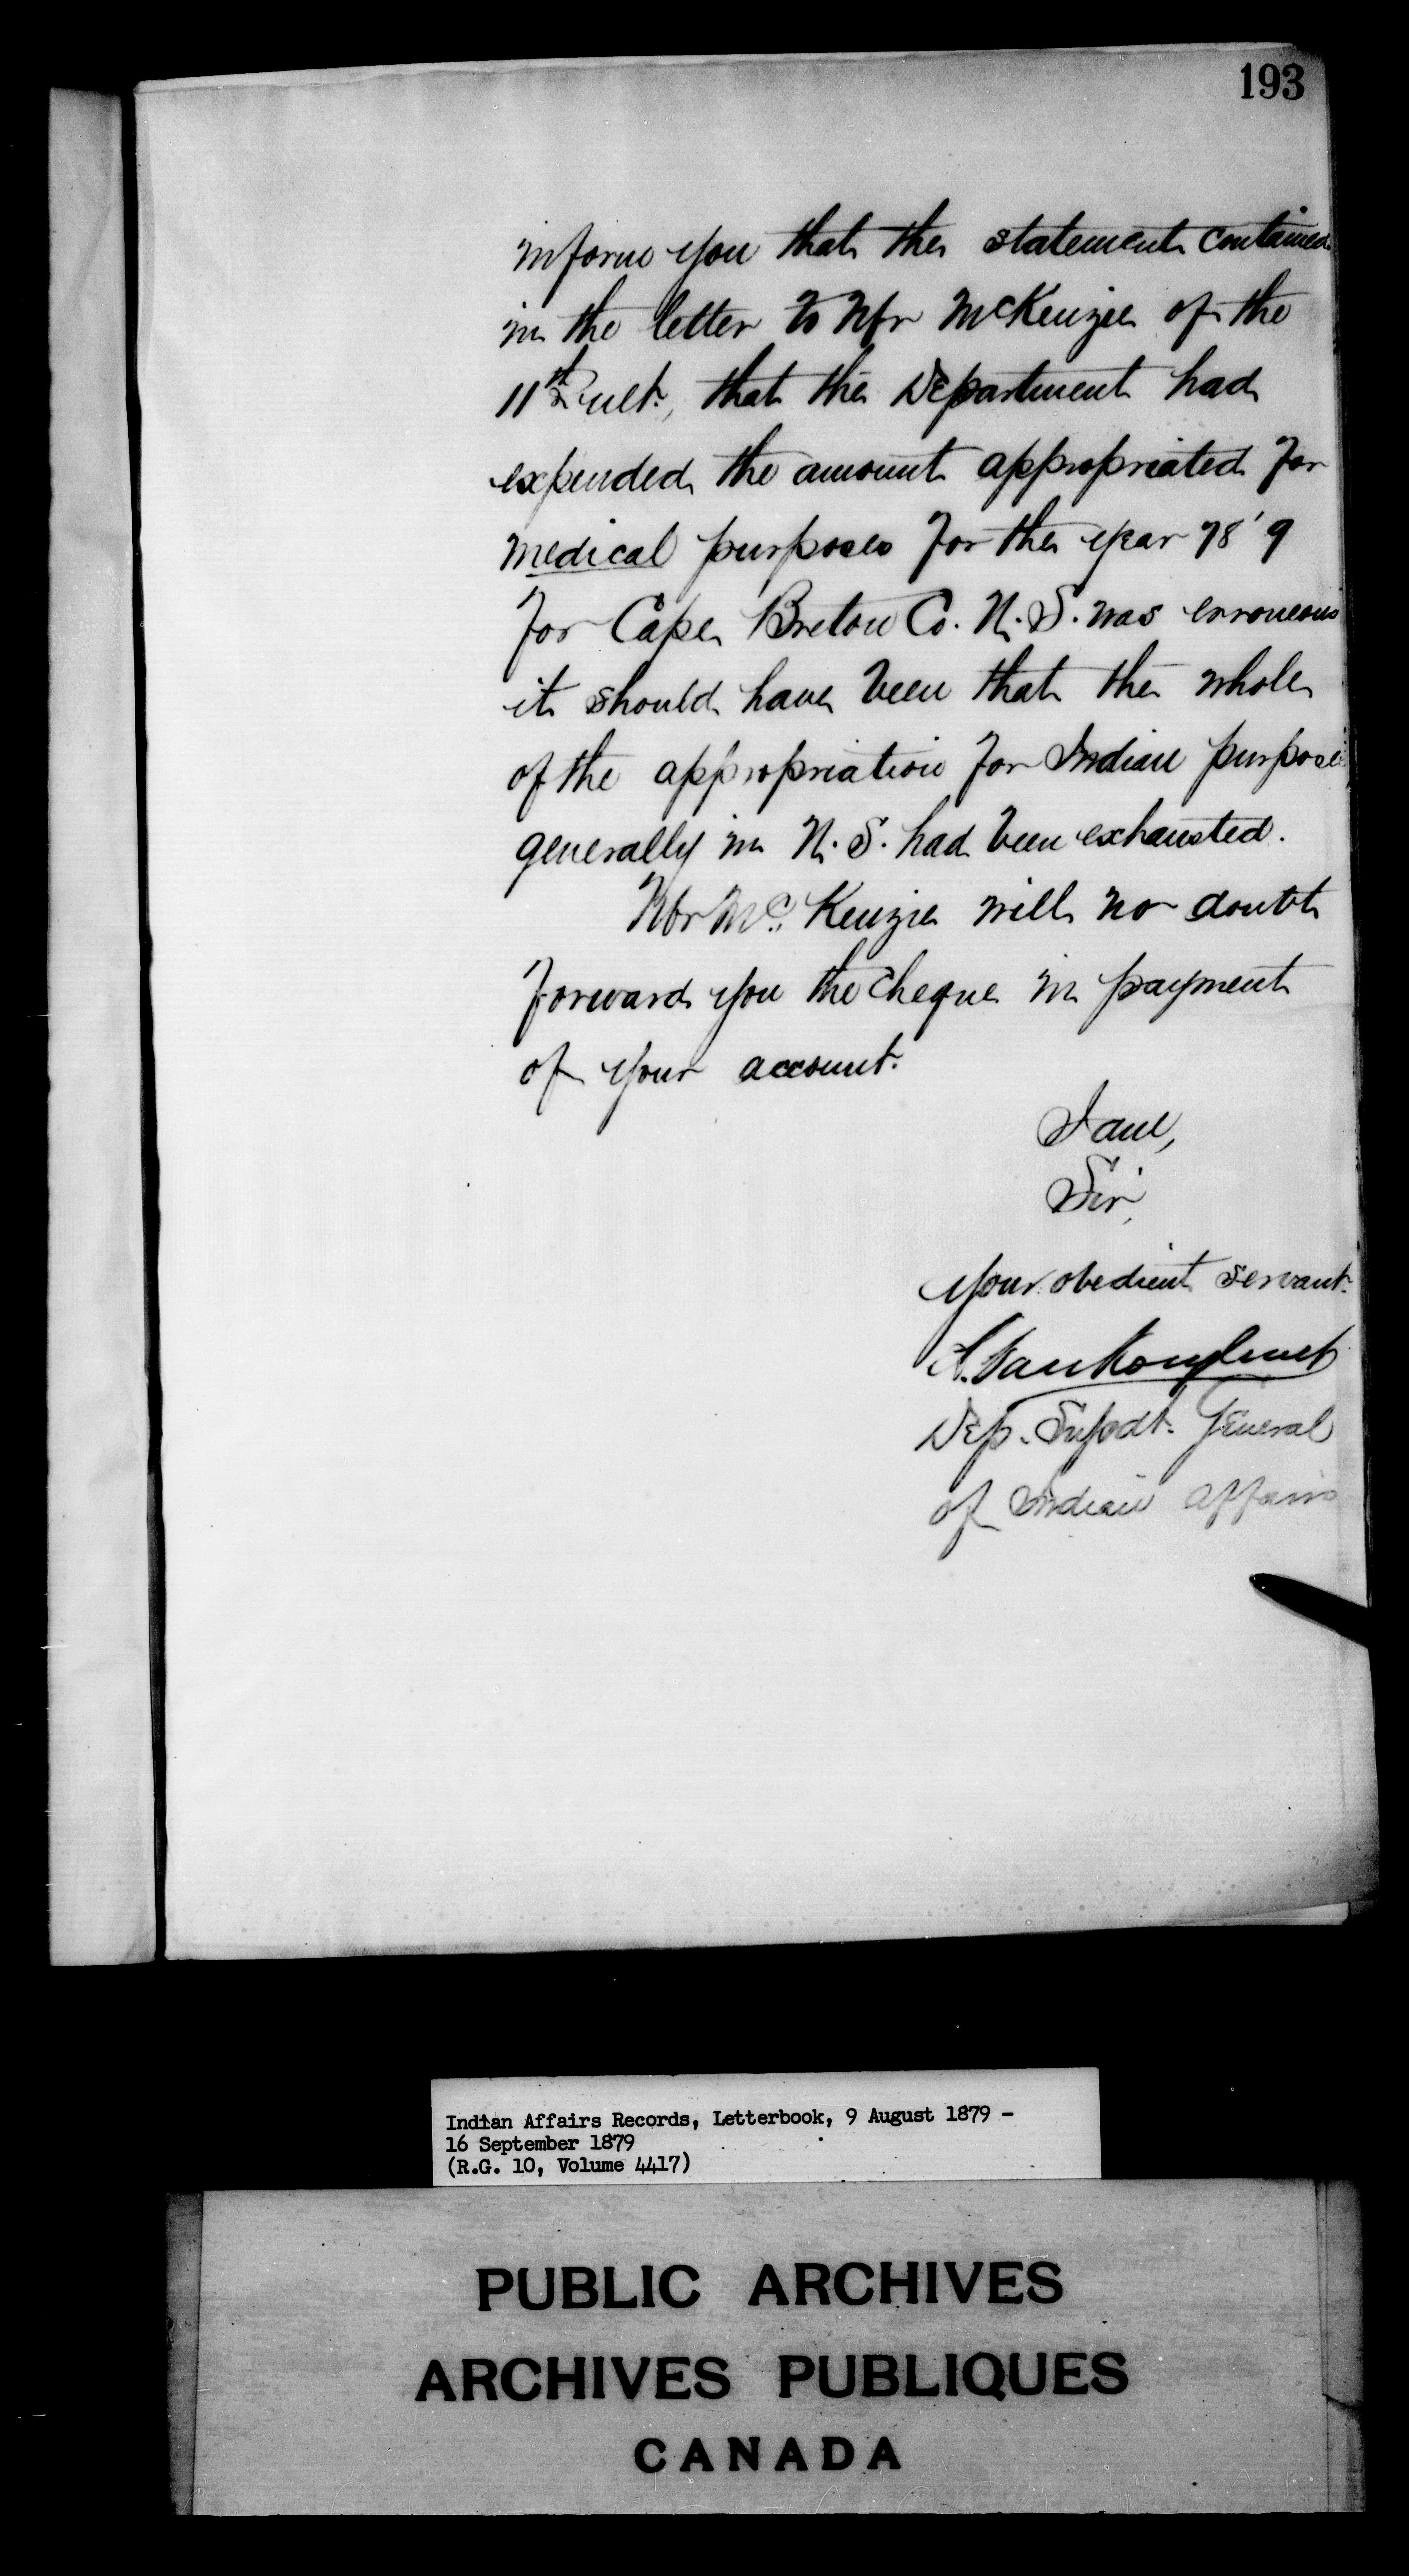 193
inform you that the statement contained
in the letter to Mr McKenzie of the
11th ult., that the Department had
expended the amount appropriated for
medical purposes for the year 78'9
for Cape Breton Co. N.S. was erroneous
it should have been that the whole
of the appropriation for Indian purposes
generally in N.S. had been exhausted.
Mr Mc. Kenzie will no doubt
forward you the cheque in payment
of your account.
I am,
Sir,
Your obedient servant.
L. Vankoughnet
Dep. Supdt. General
of Indian Affairs
Indian Affairs Records, Letterbook, 9 August 1879 -
16 September 1879
(R.G. 10, Volume 4417)
PUBLIC ARCHIVES
ARCHIVES PUBLIQUES
CANADA